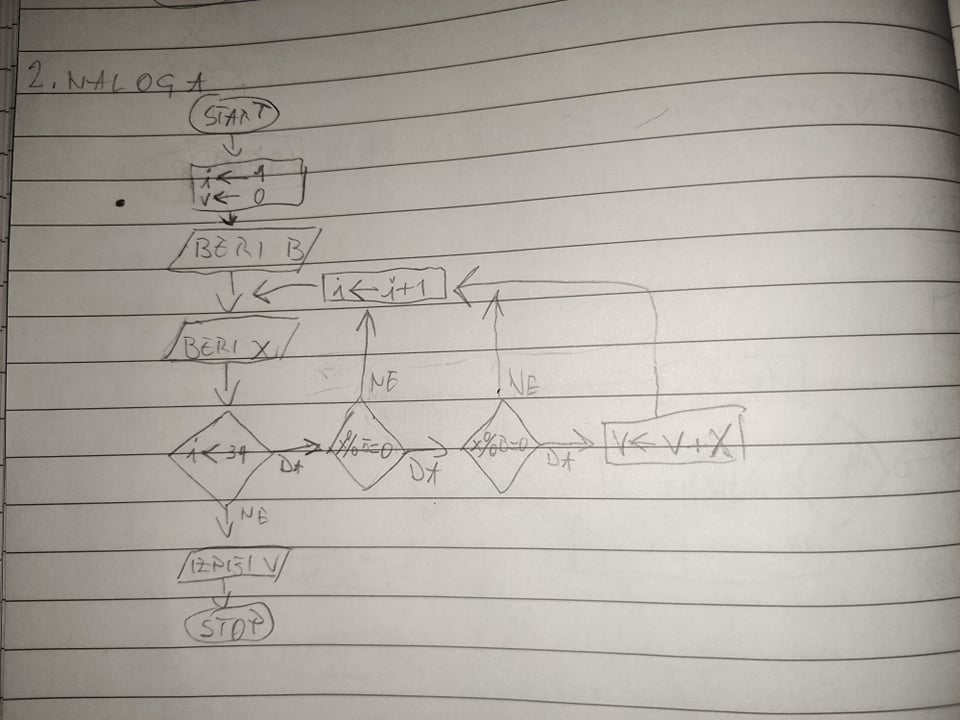 2. NALOGA
START
i ← 1
v ← 0
BERI B
i ← i+1
BERI X
NE
NE
i ← 34
DA
DA
x%B=0
DA
V ← V+X
NE
IZPIŠI V
STOP